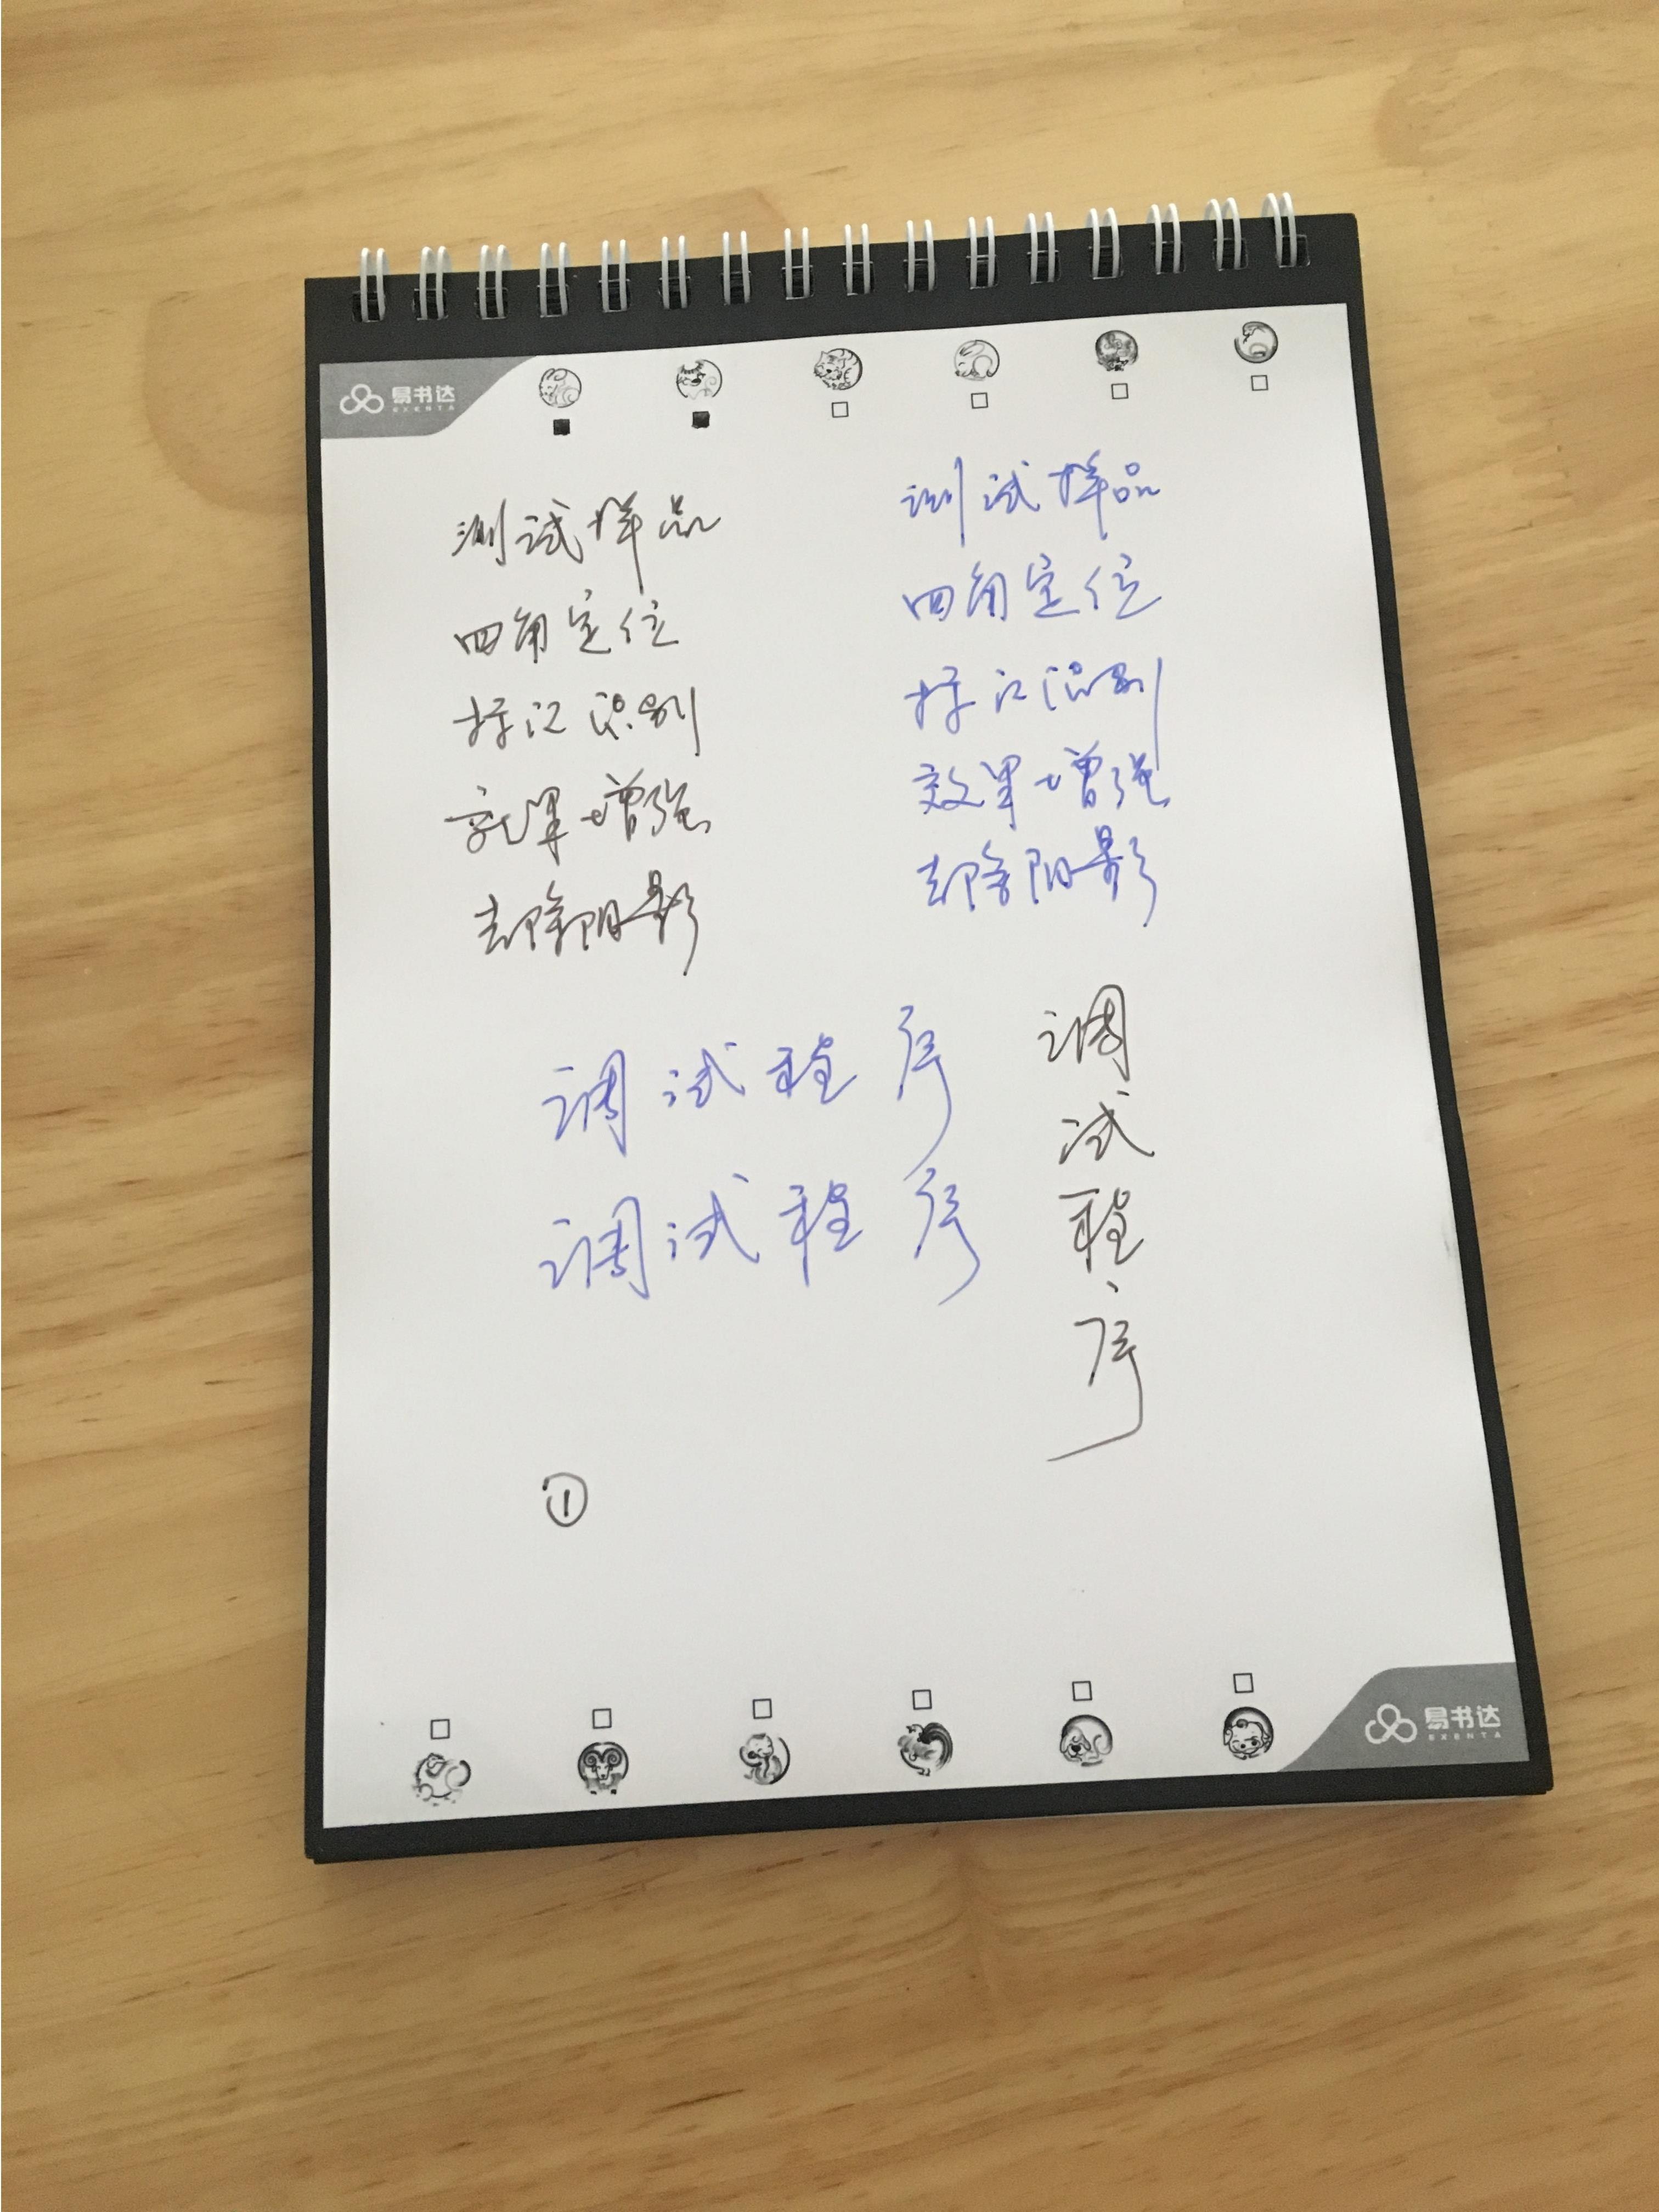 易书达
EXENTA
测试样品
四角定位
标记识别
效果增强
去除阴影
测试样品
四角定位
标记识别
效果增强
去除阴影
调试程序
调试程序
调试程序
①
易书达
EXENTA